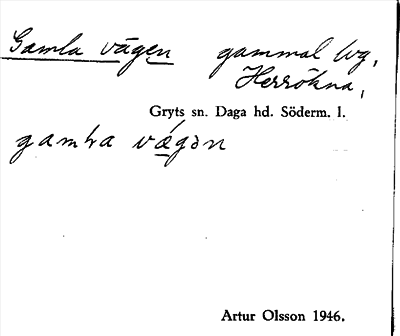 Gamla vägen gammal vg,
Herrökna,
Gryts sn. Daga hd. Söderm. l.
gamla vägən
Artur Olsson 1946.